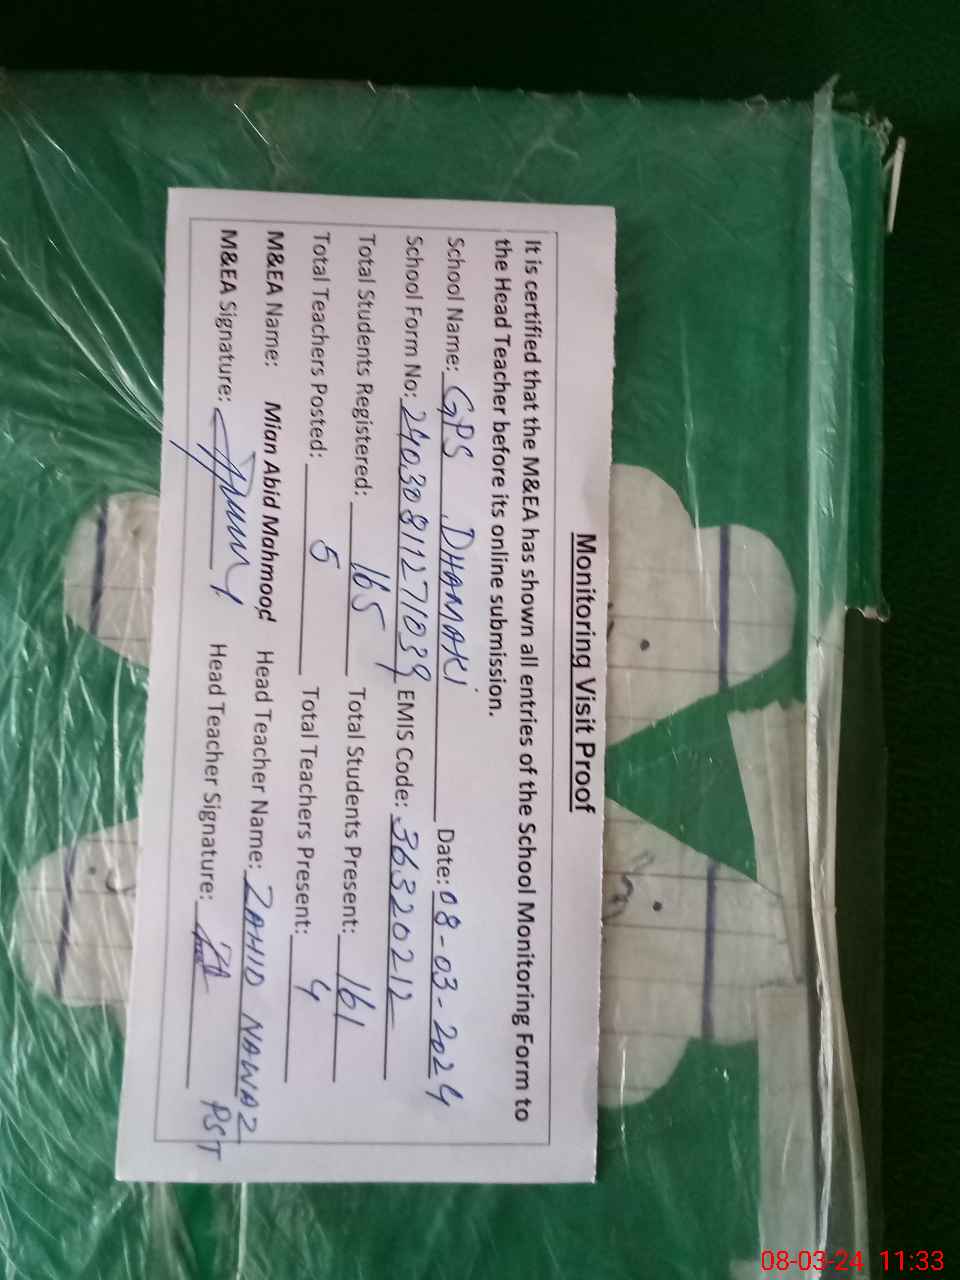 Monitoring Visit Proof
It is certified that the M&EA has shown all entries of the School Monitoring Form to
the Head Teacher before its online submission.
School Name: GPS DHAMAKI Date: 08-03-2024
School Form No: 24030811271039 EMIS Code: 36320212
Total Students Registered: 165 Total Students Present: 161
Total Teachers Posted: 5 Total Teachers Present: 4
M&EA Name: Mian Abid Mahmood Head Teacher Name: ZAHID NAWAZ
M&EA Signature: Head Teacher Signature: PST
08-03-24 11:33